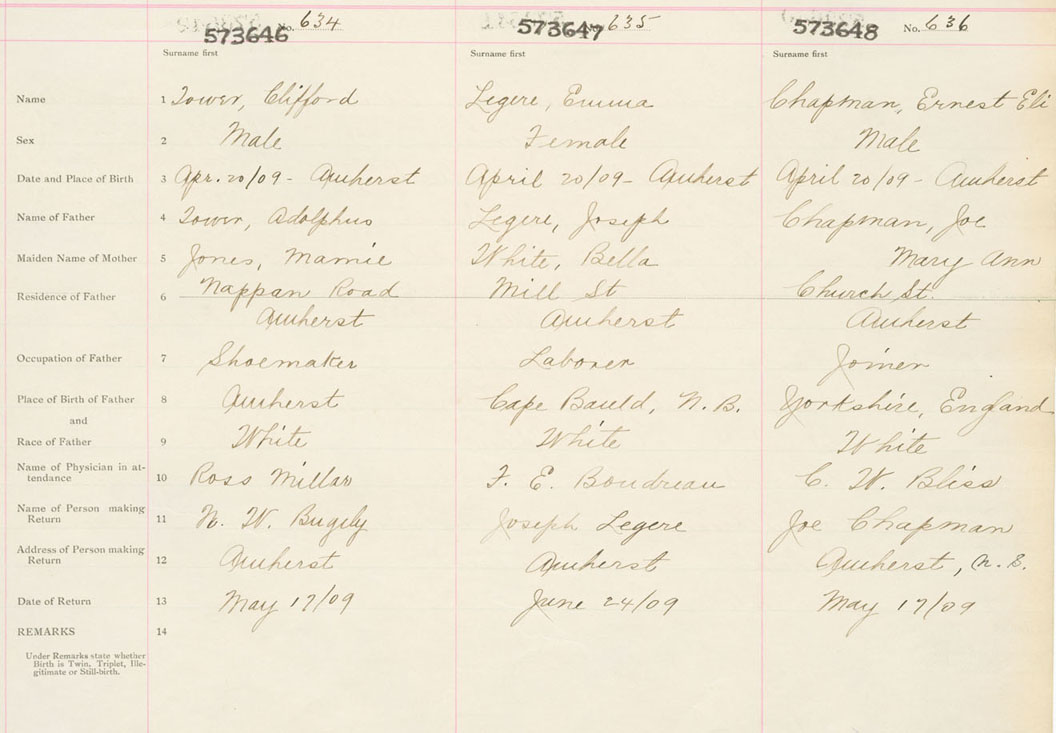 573646 No. 634 573647 No. 635 573648 No. 636
Surname first Surname first Surname first
Name 1 Tower, Clifford Legere, Emma Chapman, Ernest Eli
Sex 2 Male Female Male
Date and Place of Birth 3 Apr. 20/09 - Amherst April 20/09 - Amherst April 20/09 - Amherst
Name of Father 4 Tower, Adolphus Legere, Joseph Chapman, Joe
Maiden Name of Mother 5 Jones, Mamie White, Bella Mary Ann
Residence of Father 6 Nappan Road Mill St Church St.
Amherst Amherst Amherst
Occupation of Father 7 Shoemaker Laborer Joiner
Place of Birth of Father 8 Amherst Cape Bauld, N.B. Yorkshire, England
and
Race of Father 9 White White White
Name of Physician in at-
tendance 10 Ross Millar F. E. Boudreau C. W. Bliss
Name of Person making
Return 11 N. W. Joseph Legere Joe Chapman
Address of Person making
Return 12 Amherst Amherst Amherst, N.S.
Date of Return 13 May 17/09 June 24/09 May 17/09
REMARKS 14
Under Remarks state whether
Birth is Twin, Triplet, Ille-
gitimate or Still-birth.